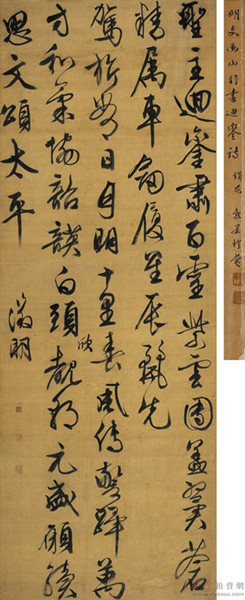 聖主迴鑾肅百靈紫雲團蓋翼蒼
精属車劒履星辰麗先
駕旂旄日月明十里春風傳警蹕萬
方和氣協韶韺白頭欣覩朝元盛願續
思文頌太平
徵明
明文衡山行書迴鑾詩 絹本